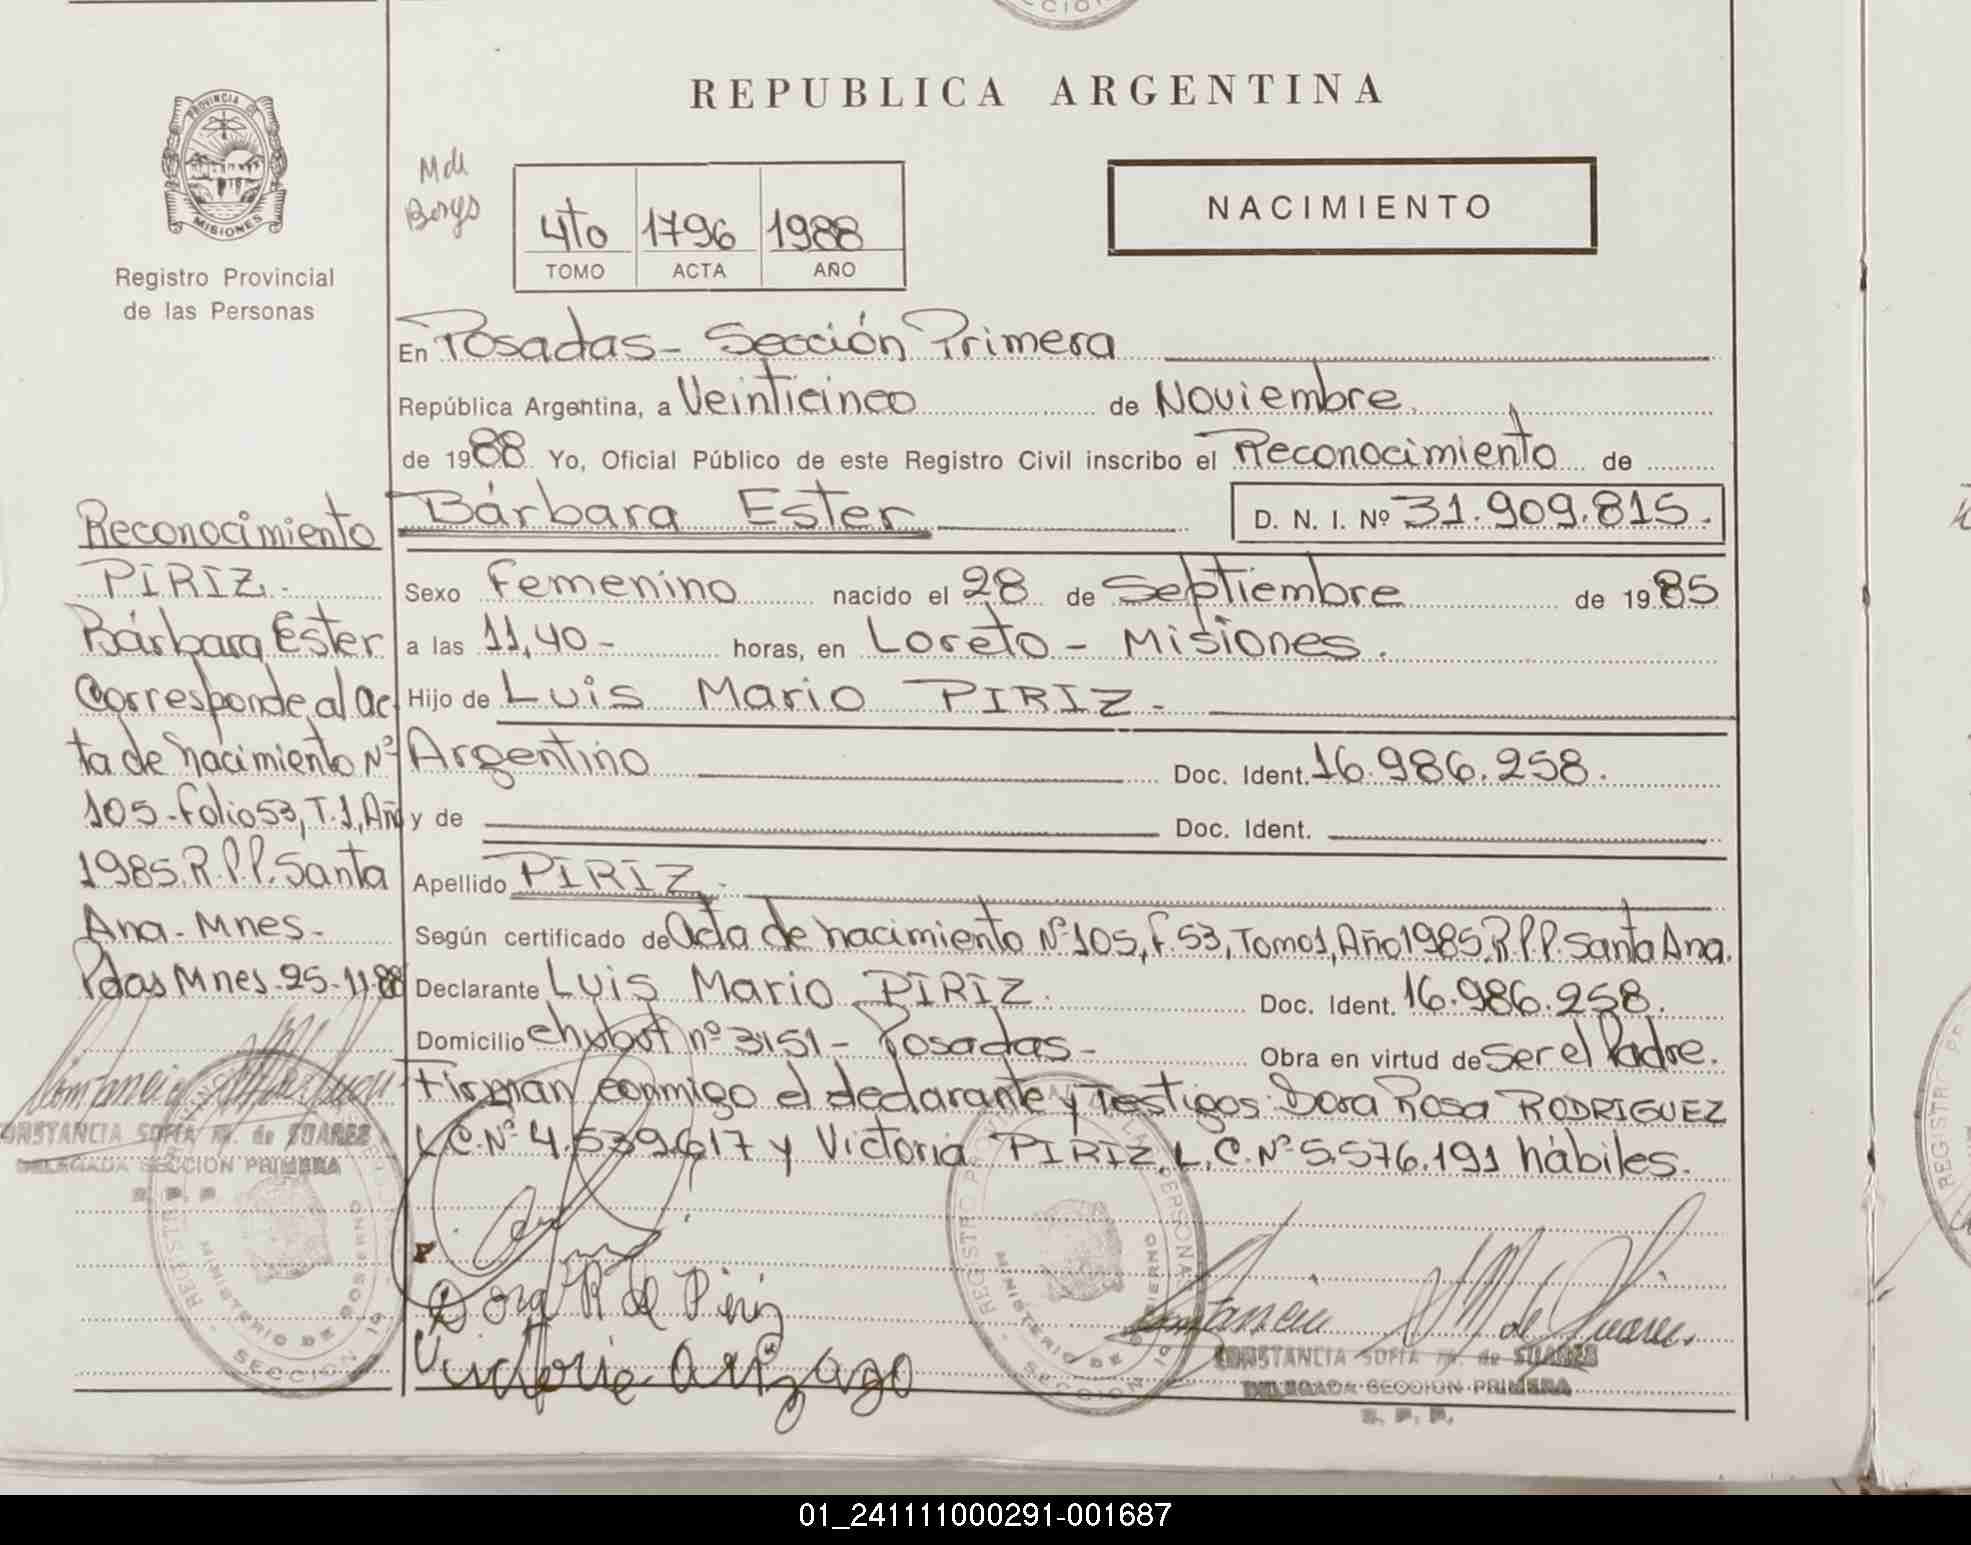 REPUBLICA ARGENTINA
PROVINCIA DE
MISIONES
Registro Provincial
de las Personas
4to 1796 1988
TOMO ACTA AÑO
NACIMIENTO
En Posadas - Sección Primera
República Argentina, a Veinticinco de Noviembre
de 1988 Yo, Oficial Público de este Registro Civil inscribo el Reconocimiento de
Bárbara Ester D. N. I. Nº 31.909.815.
Sexo Femenino nacido el 28 de Septiembre de 1985
a las 11,40 - horas, en Loreto - Misiones.
Hijo de Luis Mario PIRIZ -
Argentino Doc. Ident. 16.986.258.
y de Doc. Ident.
Apellido PIRIZ -
Según certificado de Acta de nacimiento Nº 105, F. 53, Tomo 1, Año 1985. R.P.P. Santa Ana.
Declarante Luis Mario PIRIZ. Doc. Ident. 16.986.258.
Domicilio Chubut nº 3151 - Posadas - Obra en virtud de Ser el Padre.
Firman conmigo el declarante y Testigos: Dora Rosa RODRIGUEZ
L.C. Nº 4.539.617 y Victoria PIRIZ, L.C. Nº 5.576.191 hábiles.
Reconocimiento
PIRIZ -
Bárbara Ester
Corresponde al Ac
ta de nacimiento Nº
105 - Folio 53, T.1, Año
1985. R.P.P. Santa
Ana - Mnes -
Pdas Mnes. 25-11-88
CONSTANCIA SOFIA M. de SUAREZ
DELEGADA SECCION PRIMERA
R. P. P.
Dora R de Piriz
CONSTANCIA SOFIA M. de SUAREZ
DELEGADA SECCION PRIMERA
R. P. P.
01_241111000291-001687